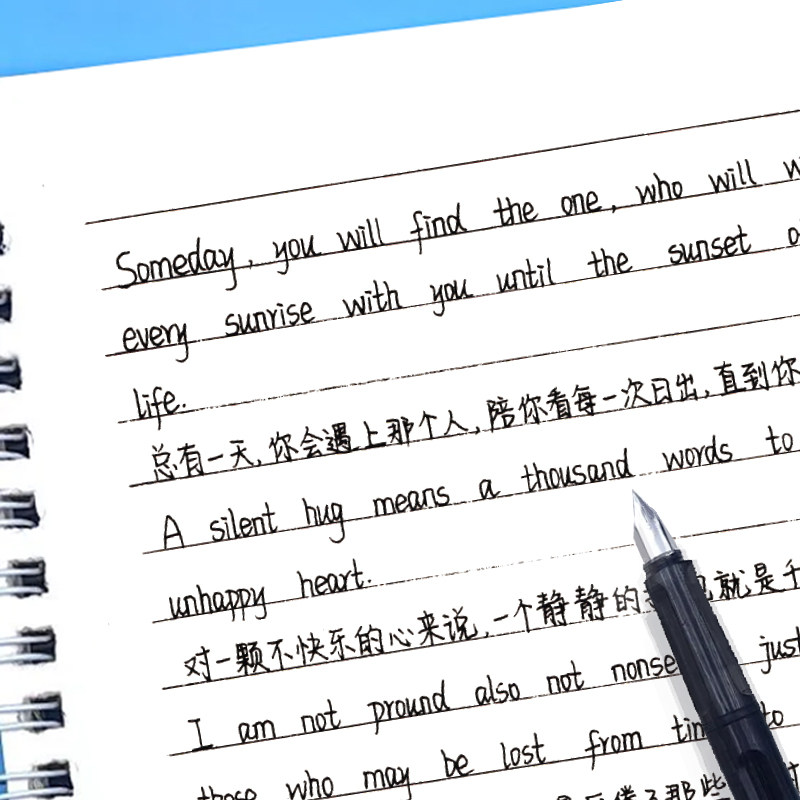 Someday, you will find the one, who will
every sunrise with you until the sunset
life.
总有一天,你会遇上那个人,陪你看每一次日出,直到你
A silent hug means a thousand words to
unhappy heart.
对一颗不快乐的心来说,一个静静的 就是千
I am not pround also not just
those who may be lost from to
那些